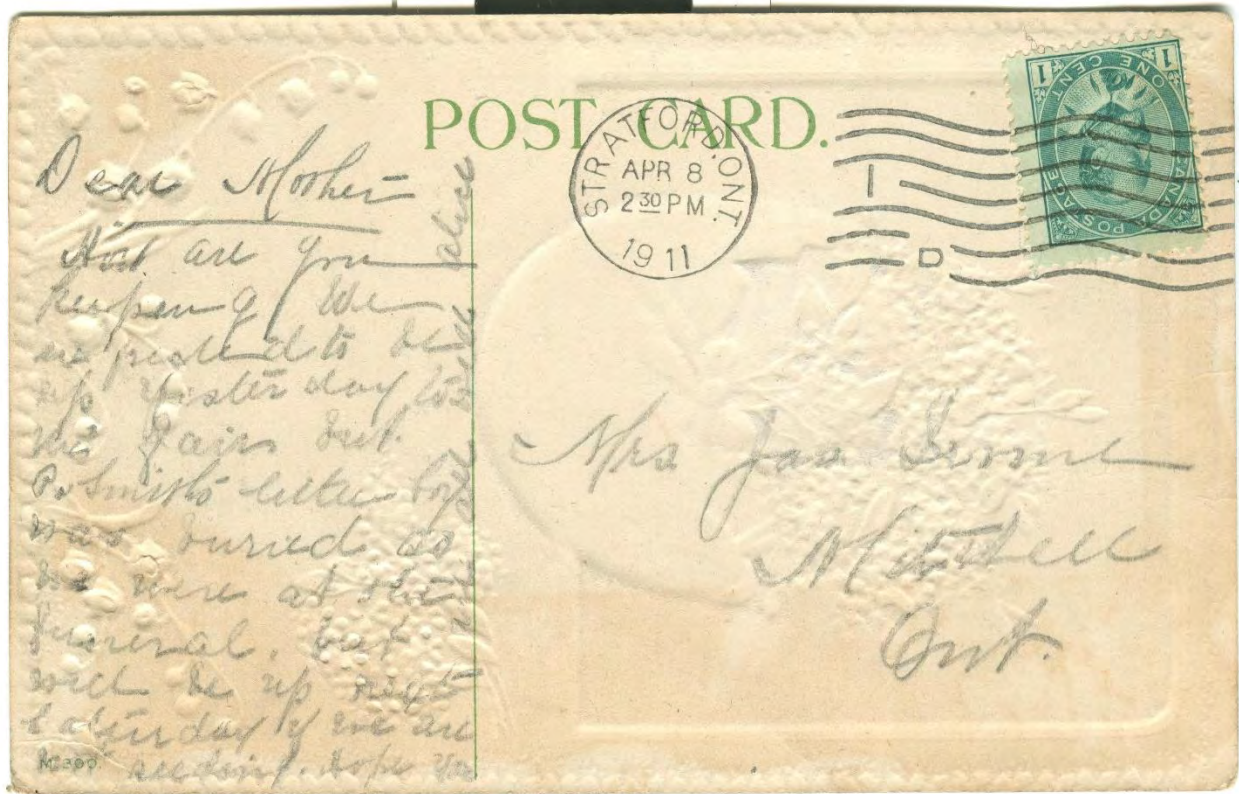 POST CARD.
STRATFORD. ONT.
APR 8
2 30 PM
1911
I
D
1 ONE CENT 1
CANADA POSTAGE
Dear Mother
How are you
keeping We
expected to be
up yesterday to
the Fair but
P. Smiths little boy
was buried so
we were at the
funeral. but
will be up next
Saturday if we are
not seeding. Hope you
Mrs Jas
Mitchell
Ont.
M. 300.